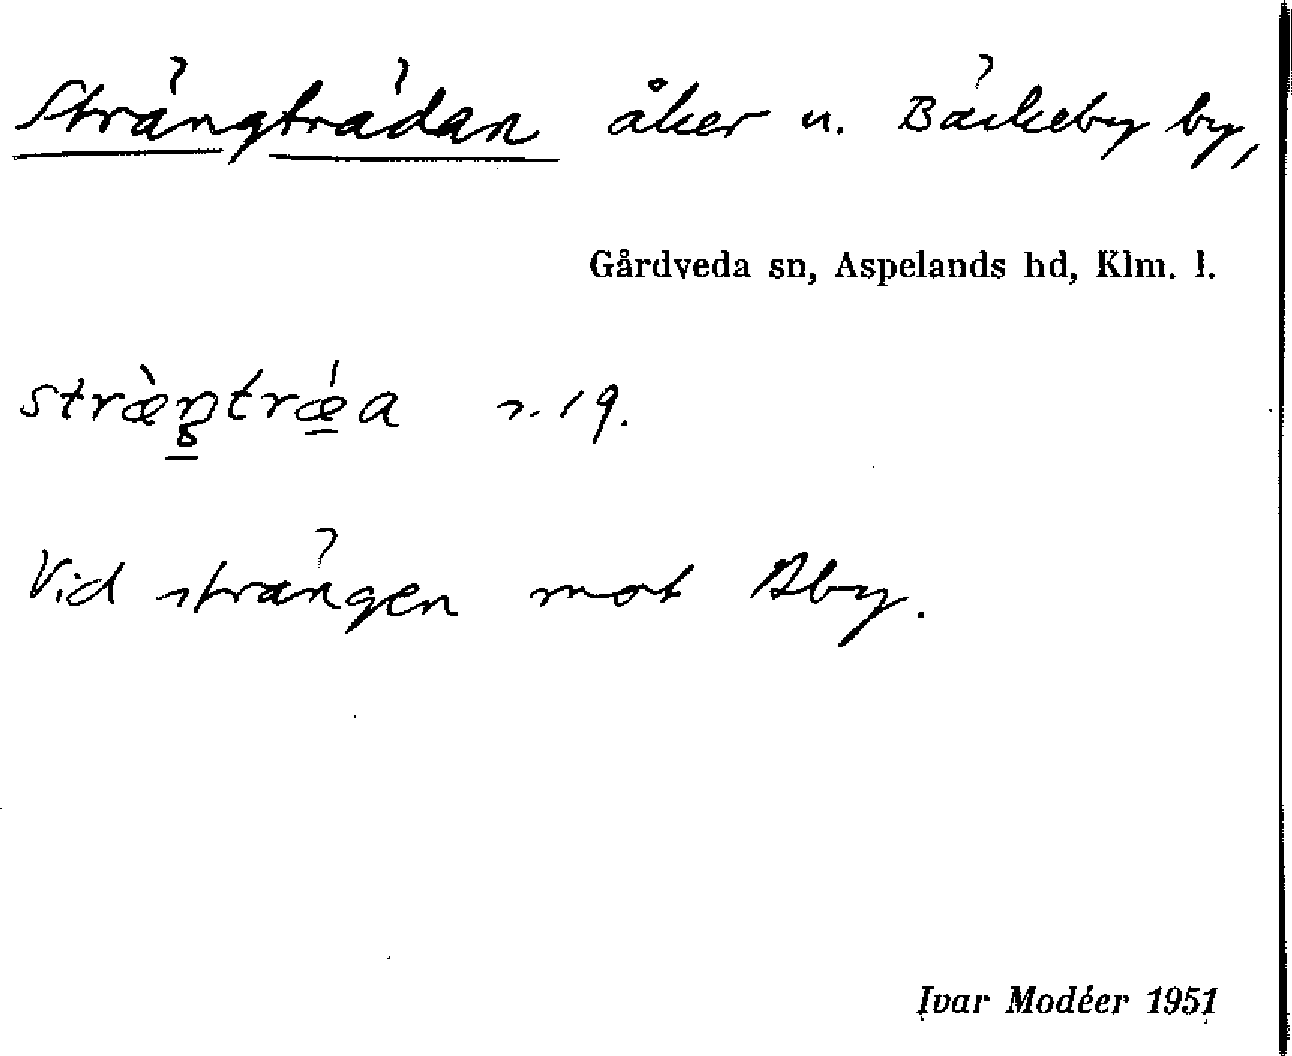 Strängträdan åker u. Bäckeby by,
Gårdveda sn, Aspelands hd, Klm. l.
stræ̀ŋtrǽa r. 19.
Vid strängen mot Åby.
Ivar Modéer 1951